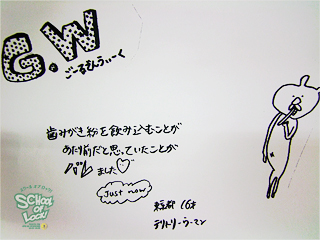 G.W
ごーるもんうぃーく
歯みがき粉を飲み込むことが
あたり前だと思っていたことが
バレました♡
Just now
東京都 16才
テリトリーウーマン
SCHOOL
OF
LOCK!